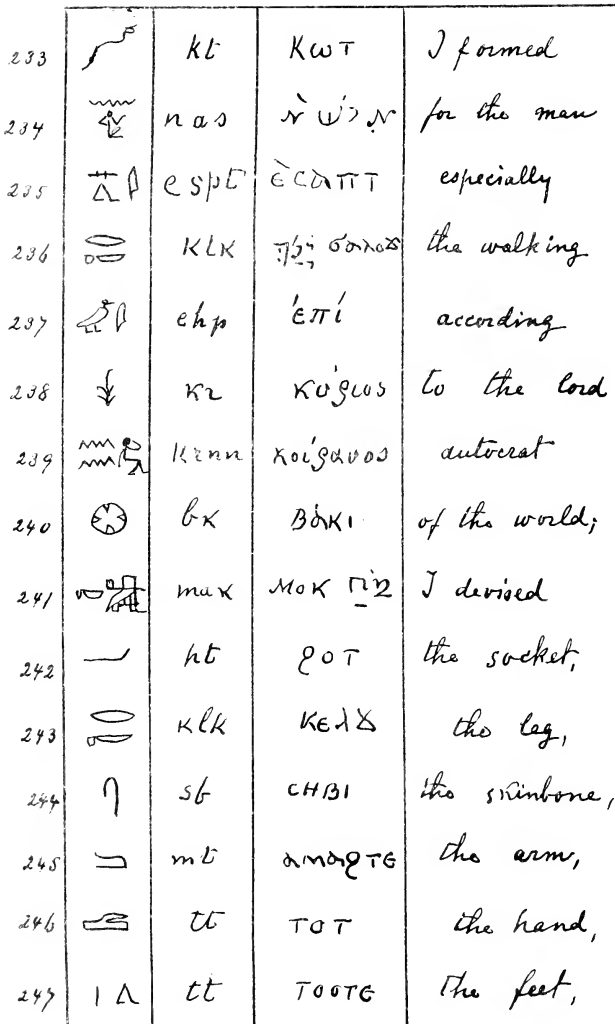 233 kt ΚωΤ I formed
234 nas for the man
235 espt ÈCàΠΤ especially
236 klk the walking
237 ehp ἐπί according
238 kr κύριος to the lord
239 krnn κοίρανος autocrat
240 bk ΒàΚΙ of the world;
241 mak ΜΟΚ I devised
242 ht ϩΟΤ the socket,
243 klk ΚΕλϪ the leg,
244 sb CΗΒΙ the skinbone,
245 mt ⲁⲙⲁϩⲧⲉ the arm,
246 tt ΤΟΤ the hand,
247 tt ΤΟΟΤΕ the feet,